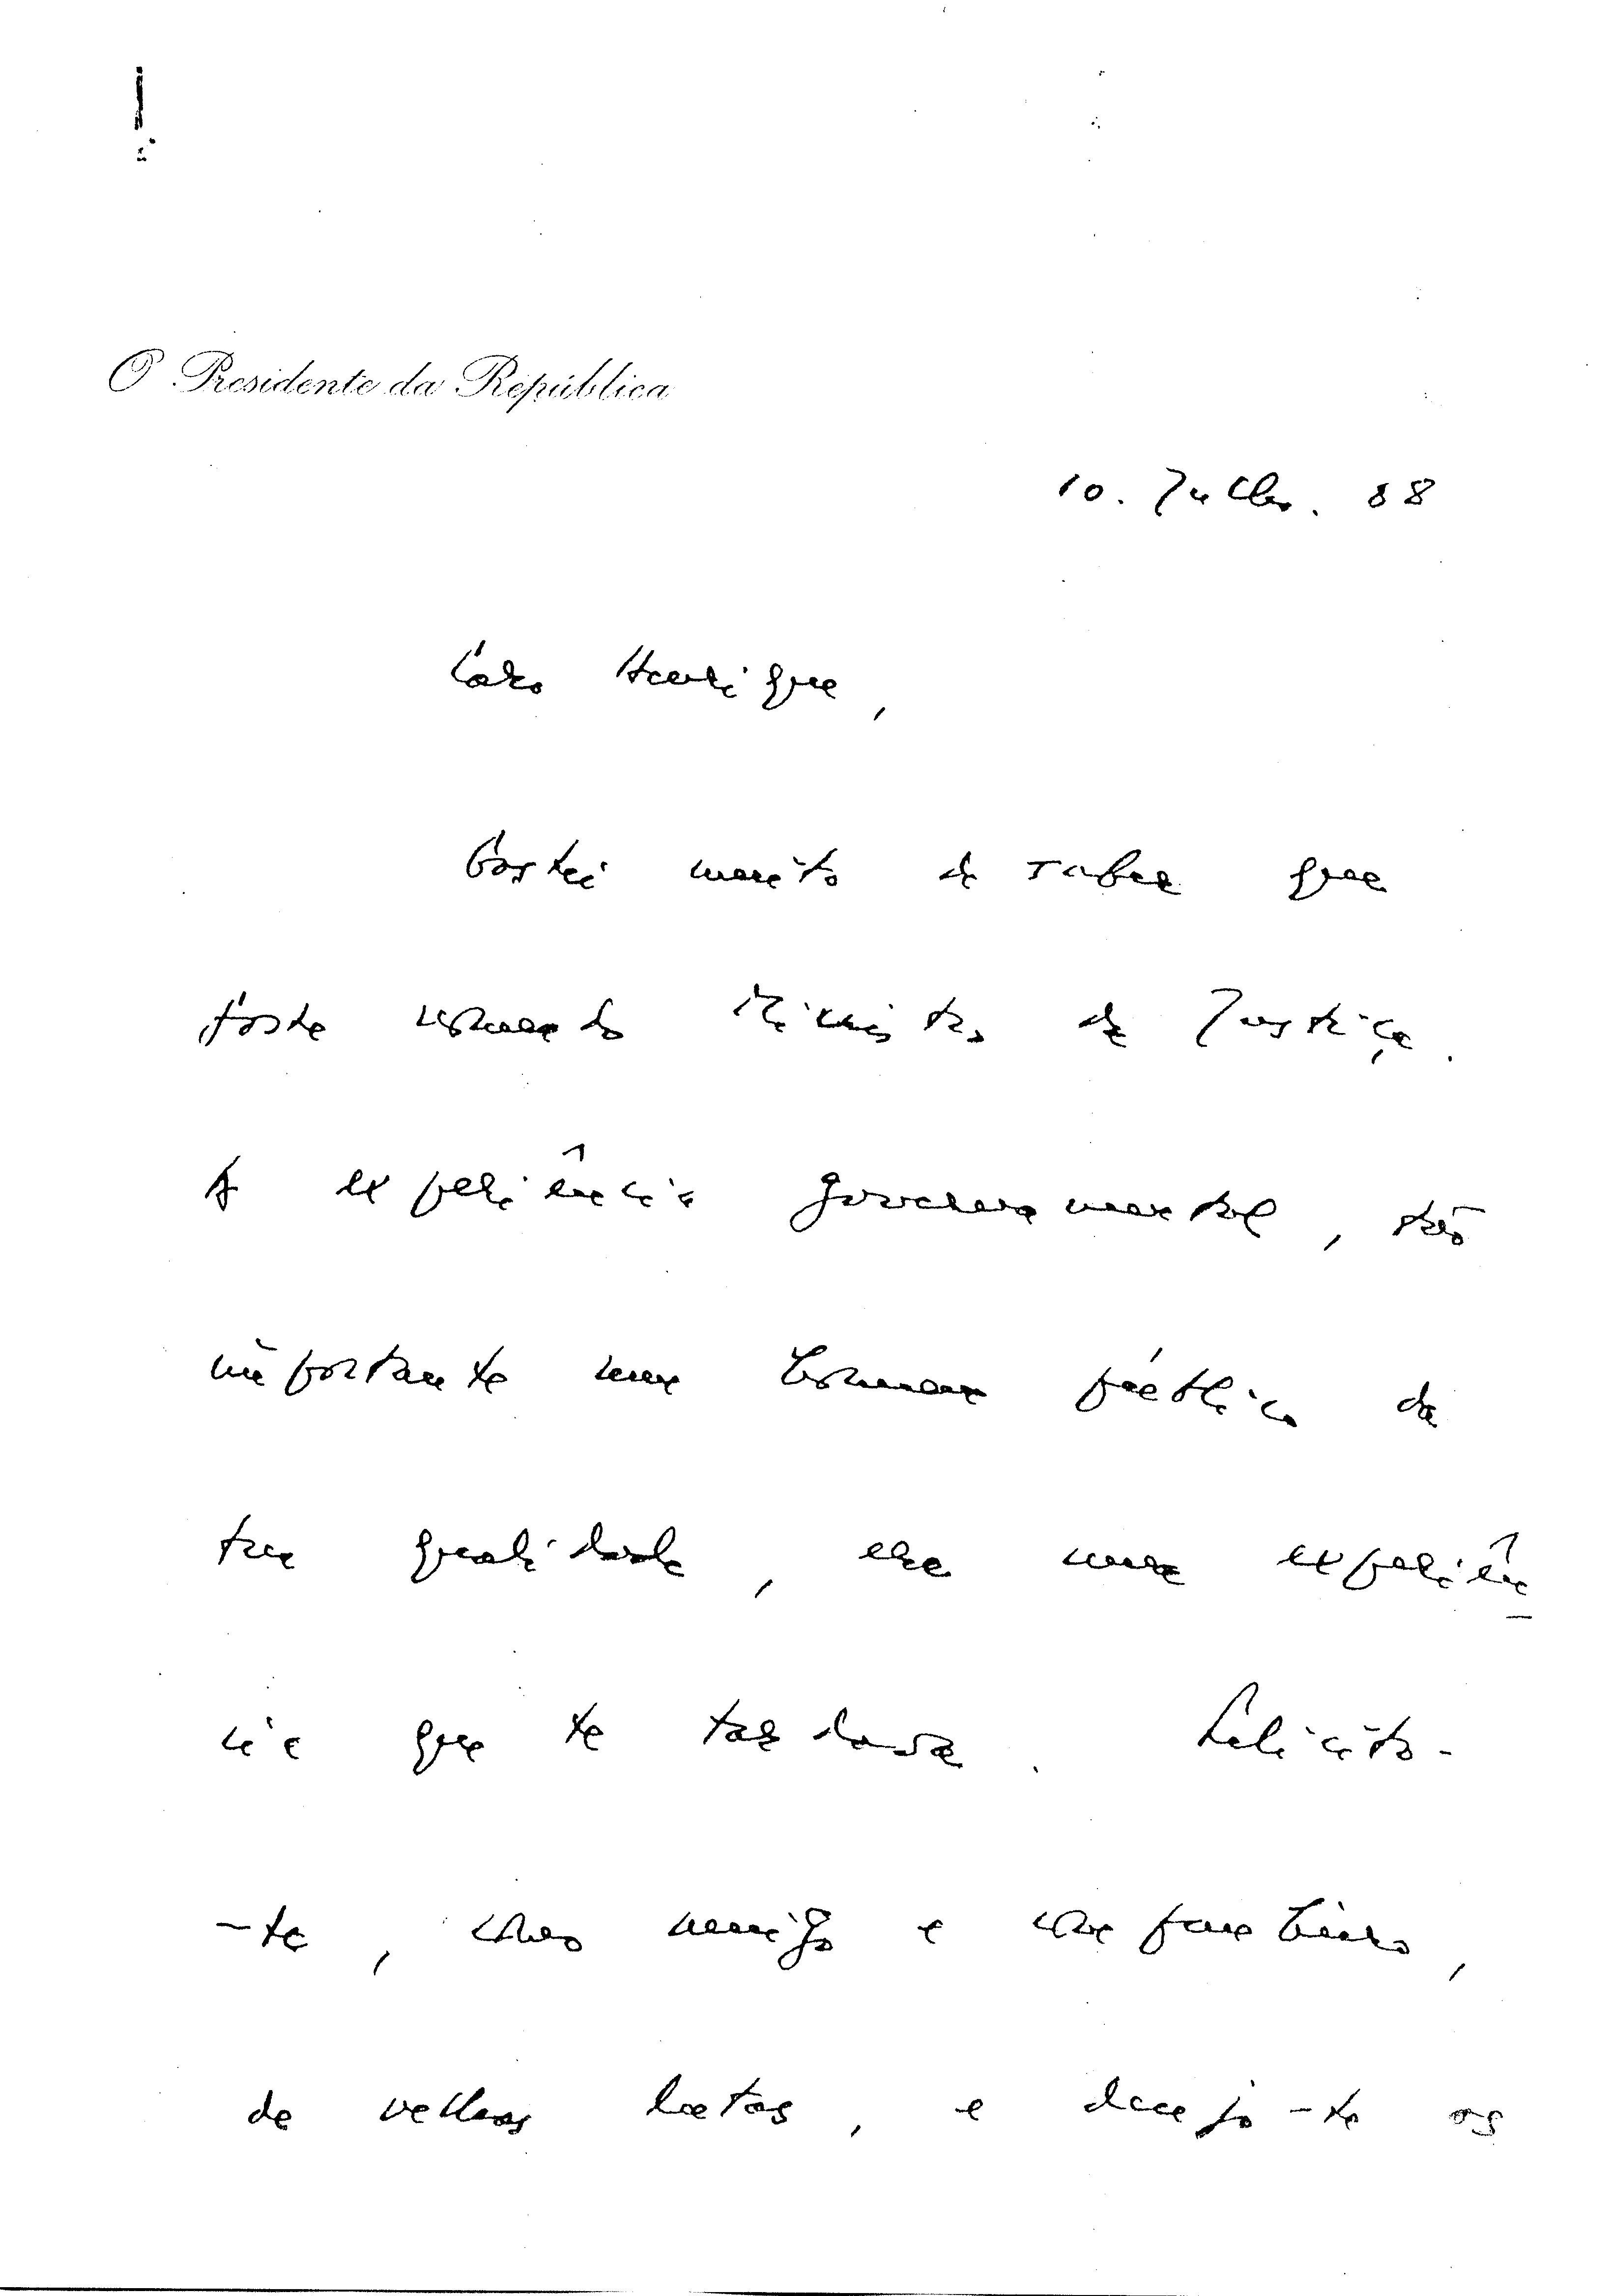 O Presidente da República
10. Julho. 88
Caro Henrique,
Gostei muito de saber que
foste nomeado Ministro da Justiça.
A experiência governamental, tão
importante num homem público da
tua qualidade, era uma experiên
cia que te tardava. Felicito-
-te, como amigo e companheiro,
de velhas lutas, e desejo-te os